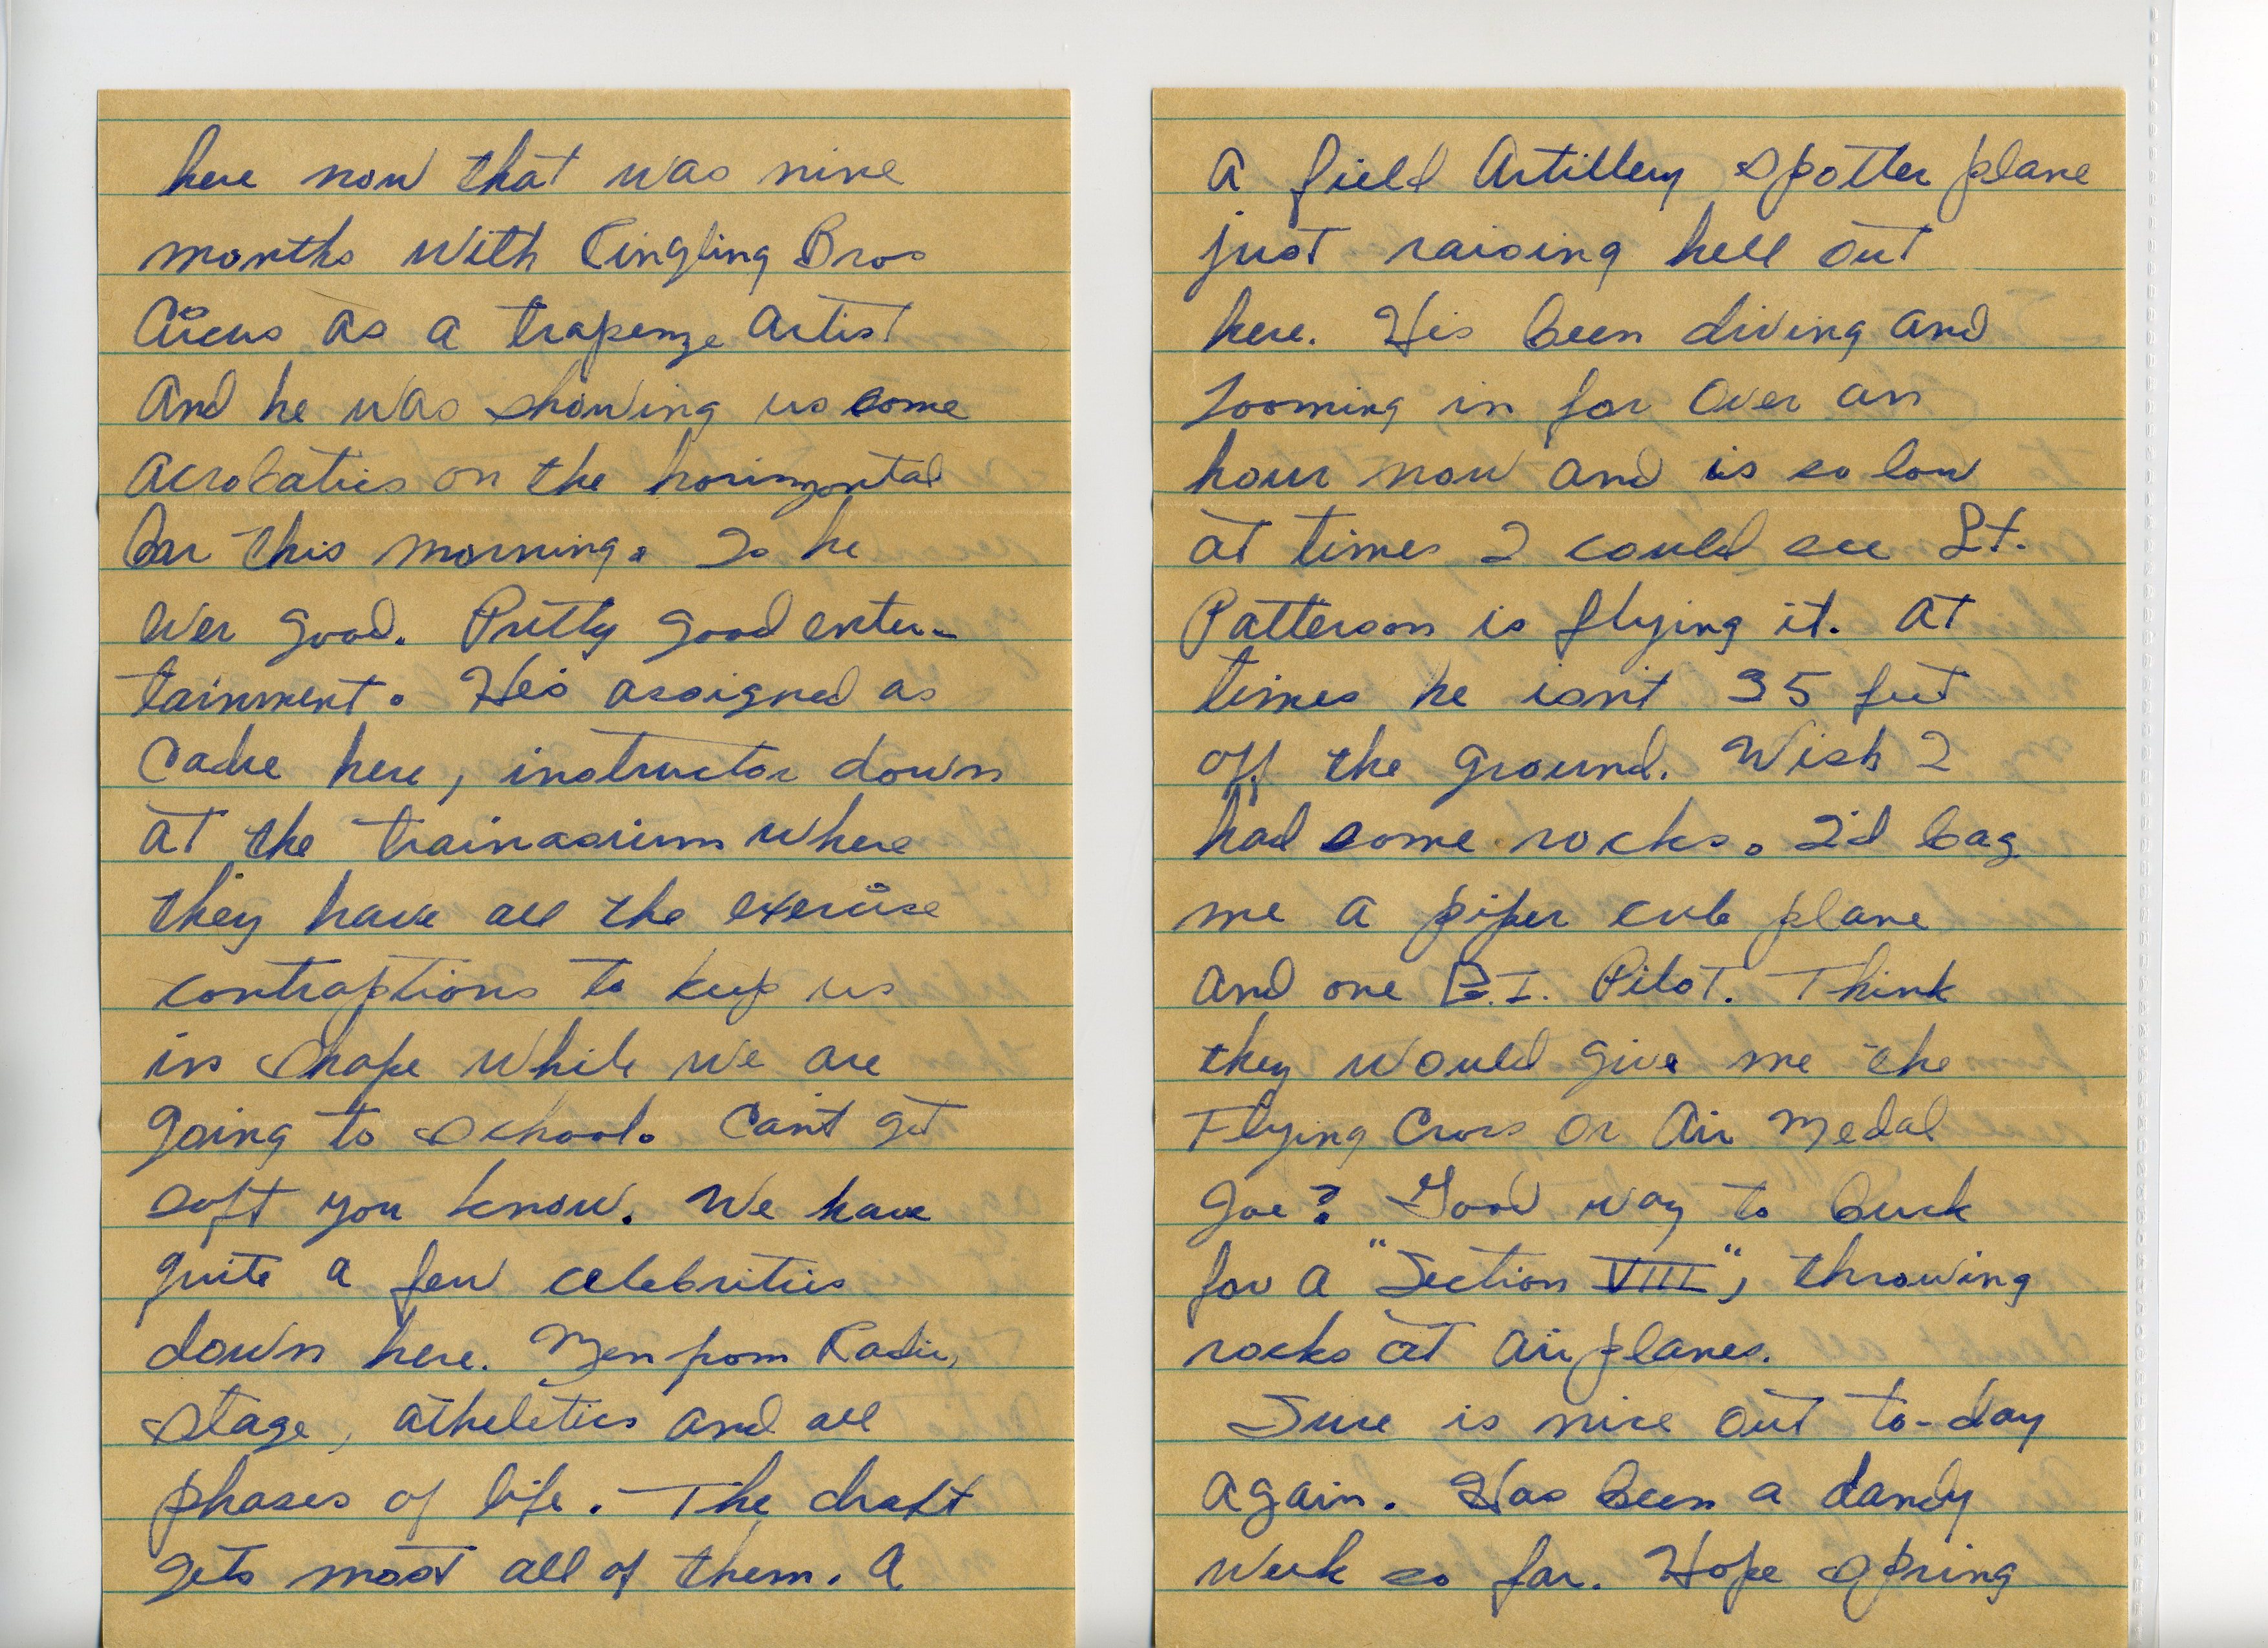 here now that was nine
months with Ringling Bros
Circus as a trapenze artist
And he was showing us some
acrobatics on the horinzontal
bar this morning. Is he
ever good. Pretty good enter-
tainment. He's assigned as
Cadre here, instructor down
at the trainasium where
they have all the exercise
contraptions to keep us
in shape while we are
going to school. Can't get
soft you know. We have
quite a few celebrities
down here. Men from Radio,
stage, atheletics and all
phases of life. The draft
gets most all of them. A
A field Artillery spotter plane
just raising hell out
here. His been diving and
zooming in for over an
hour now and is so low
at times I could see Lt.
Patterson is flying it. At
times he isn't 35 feet
off the ground. Wish I
had some rocks. I'd bag
me a piper cub plane
and one Pilot. Think
they would give me the
Flying Cross or Air Medal
Joe? Good way to buck
for a "Section VIII", throwing
rocks at Airplanes.
Sure is nice out to-day
again. Has been a dandy
week so far. Hope spring